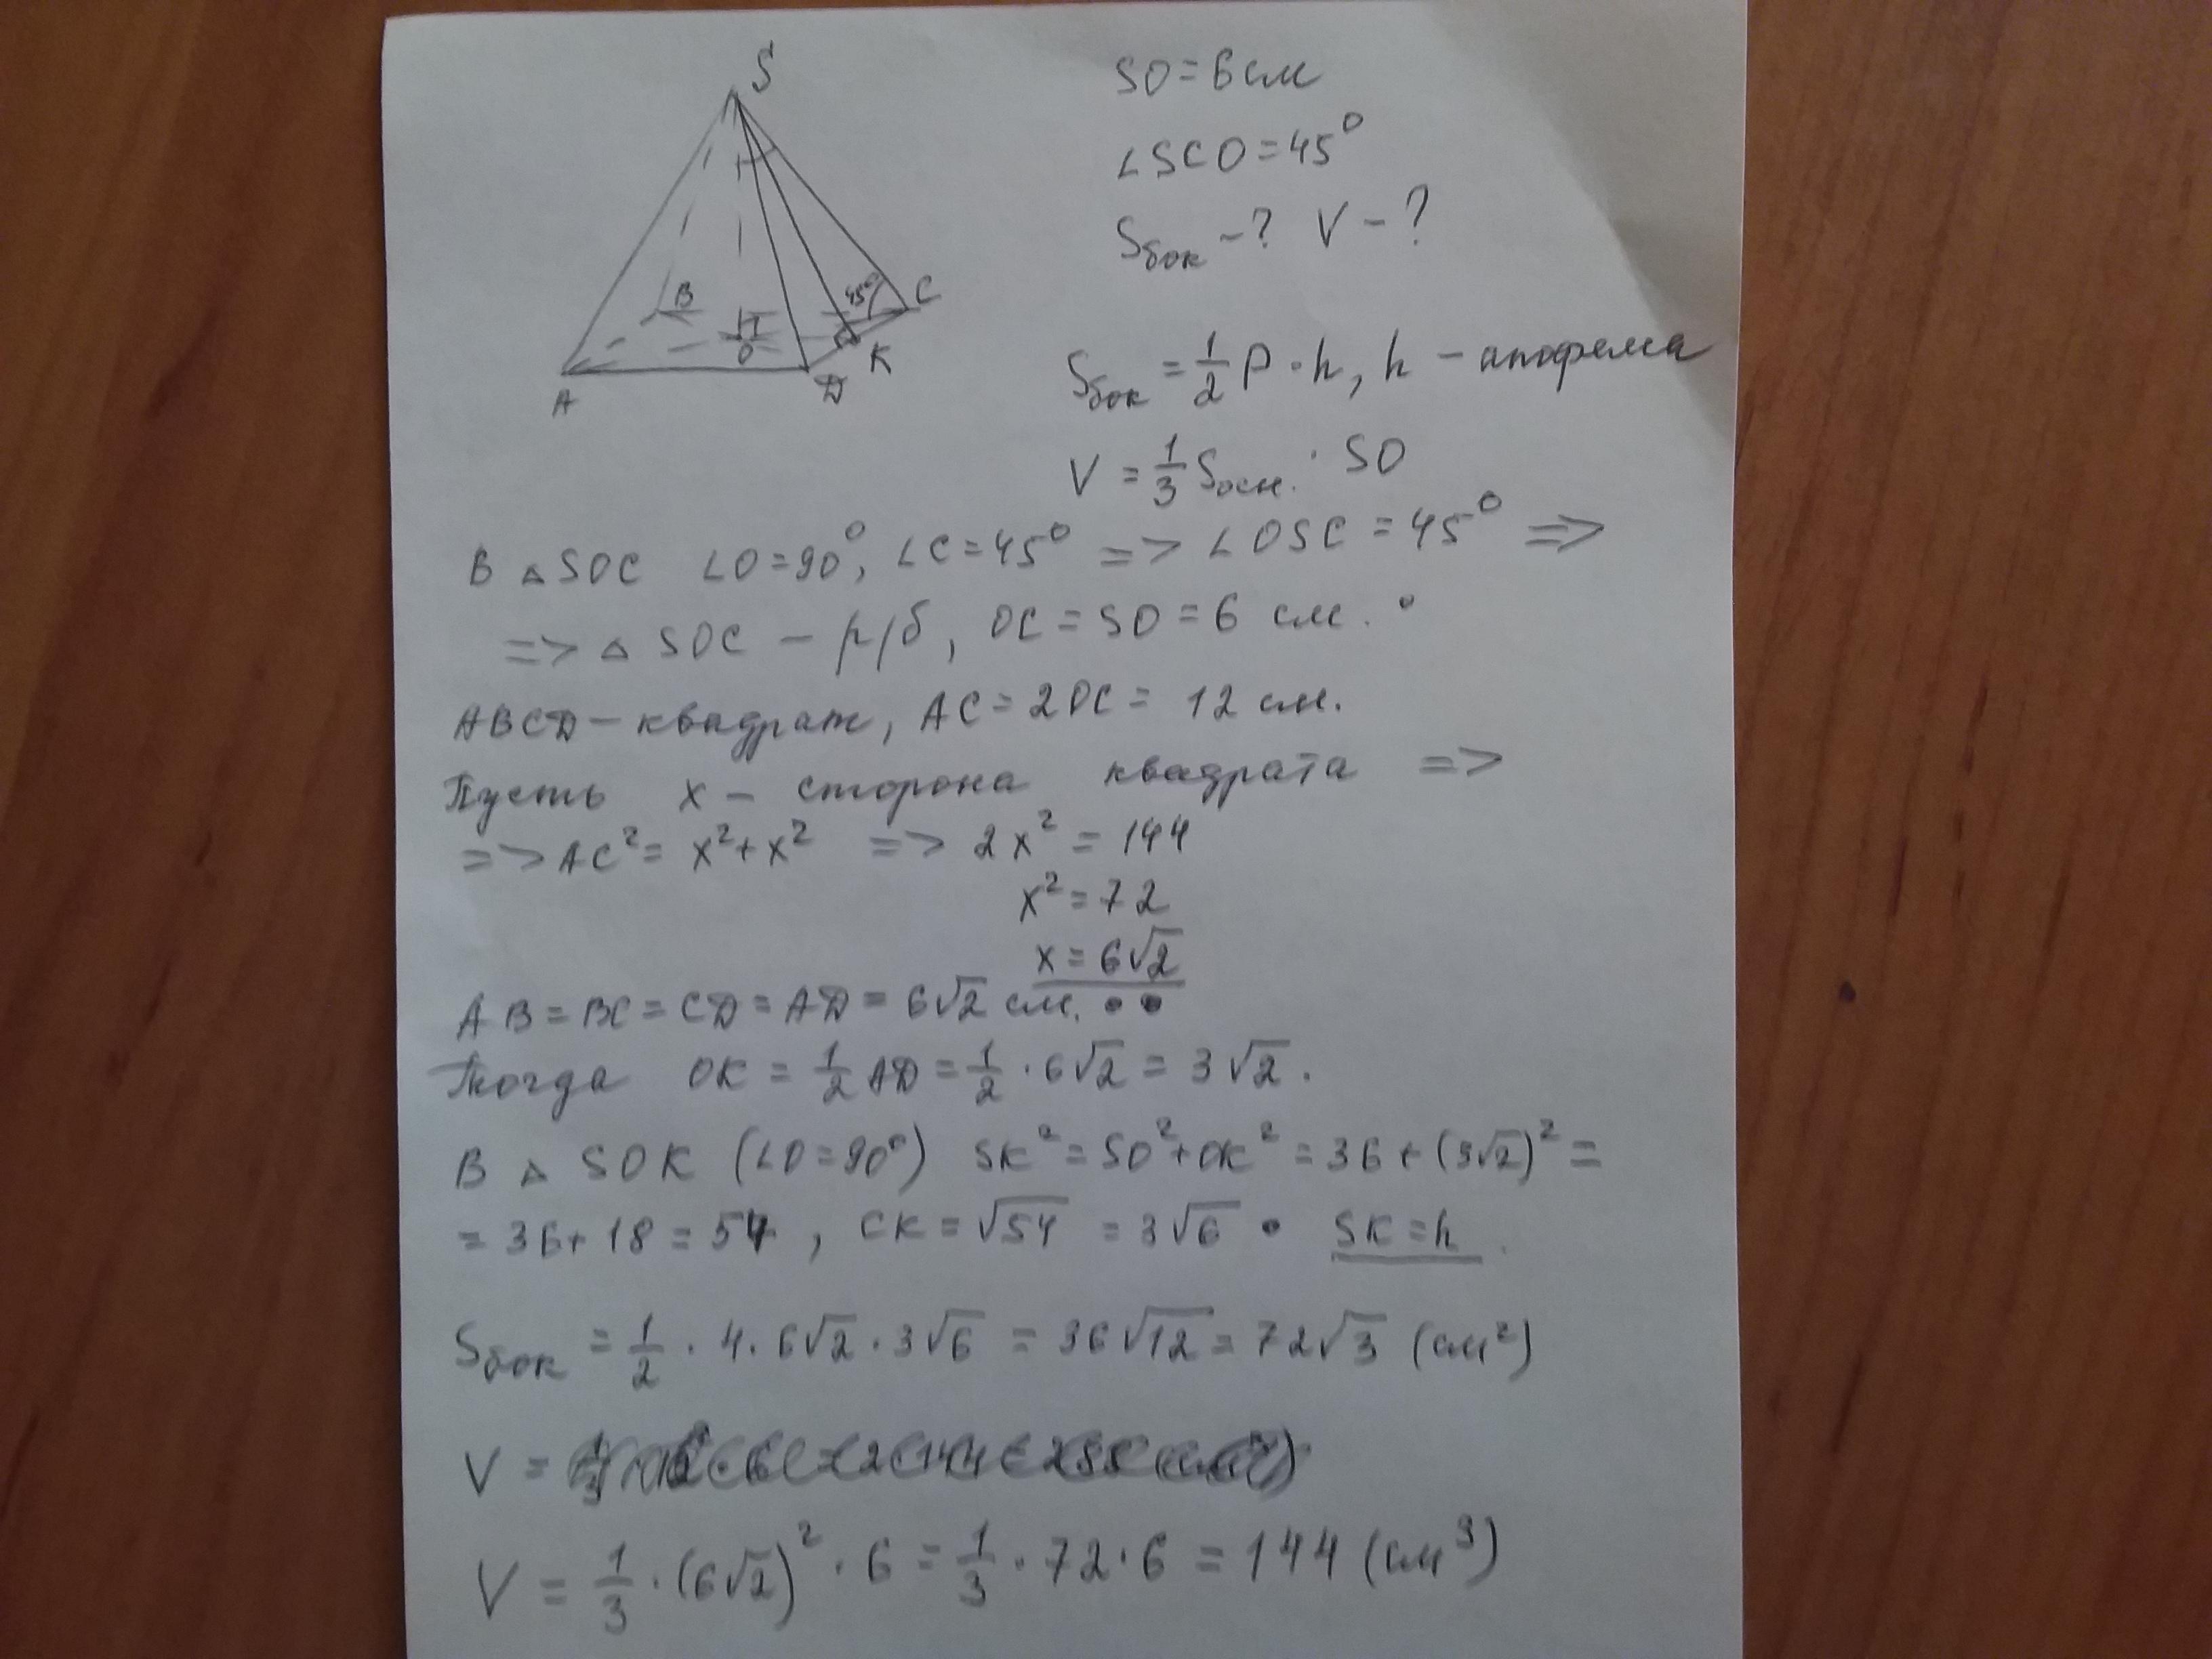 S
B
45°
C
O
K
A
D
SO = 6 см
∠SCO = 45°
Sбок – ? V – ?
Sбок = 1/2 P · h, h – апофема
V = 1/3 Sосн. · SO
В △ SOC ∠O = 90°, ∠C = 45° => ∠OSC = 45° =>
=> △ SOC – р/б, OC = SO = 6 см.
ABCD – квадрат, AC = 2OC = 12 см.
Пусть x – сторона квадрата =>
=> AC² = x² + x² => 2x² = 144
x² = 72
x = 6√2
AB = BC = CD = AD = 6√2 см.
Тогда OK = 1/2 AD = 1/2 · 6√2 = 3√2.
В △ SOK (∠O = 90°) SK² = SO² + OK² = 36 + (3√2)² =
= 36 + 18 = 54, CK = √54 = 3√6 • SK = h.
Sбок = 1/2 · 4 · 6√2 · 3√6 = 36√12 = 72√3 (см²)
V =
V = 1/3 · (6√2)² · 6 = 1/3 · 72 · 6 = 144 (см³)